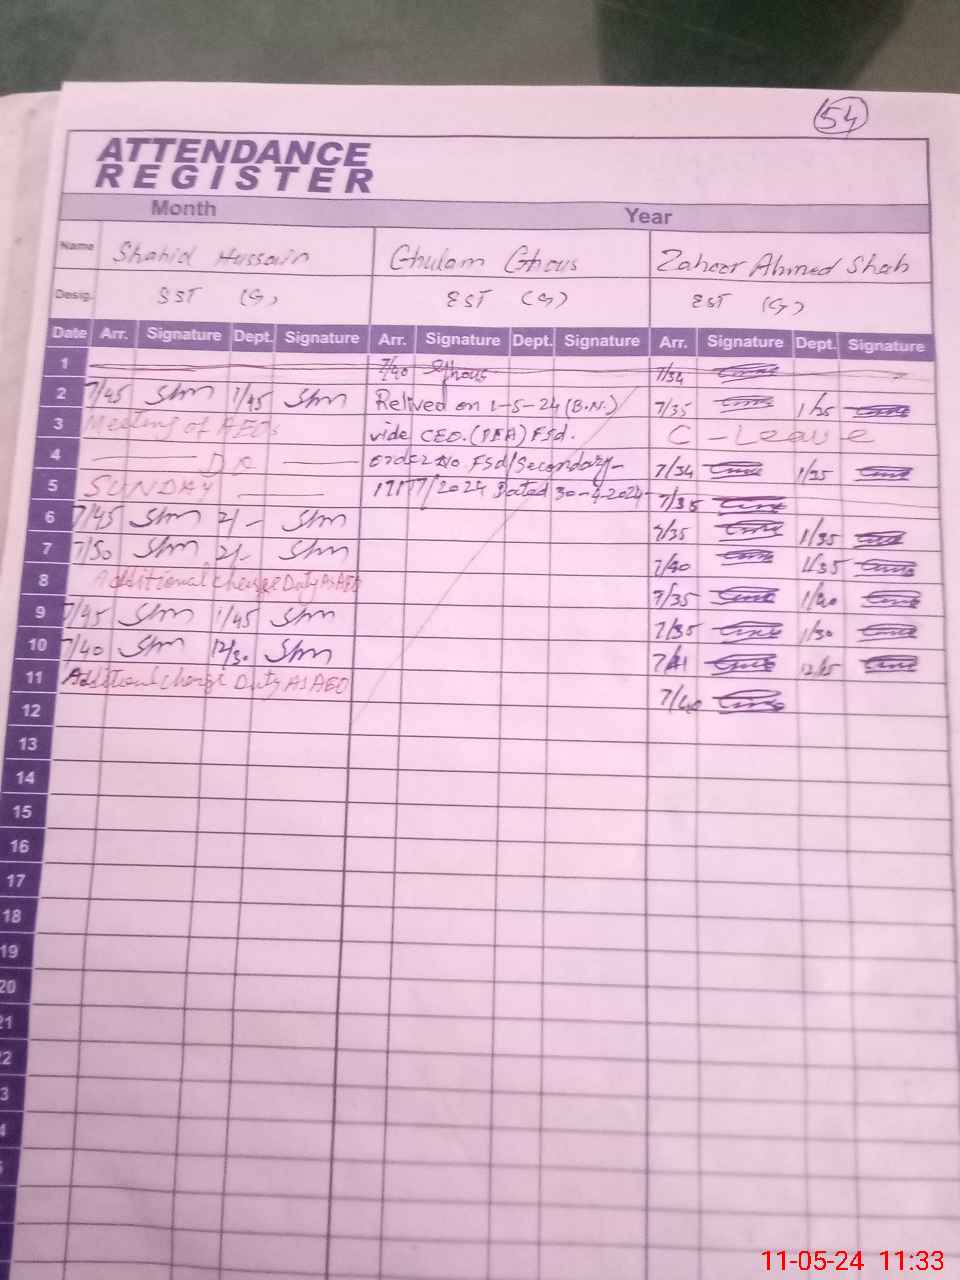 54
ATTENDANCE
REGISTER
Month Year
Name Shahid Hussain Ghulam Ghous Zaheer Ahmed Shah
Desig. SST (G) EST (G) EST (G)
Date Arr. Signature Dept. Signature Arr. Signature Dept. Signature Arr. Signature Dept. Signature
1 7/40 Ghous 7/34
2 7/45 Shn 1/45 Shn Relived on 1-5-24 (B.N.) 7/35 1/25
3 Meeting of AEOs vide CEO. (DEA) Fsd. C-Leave
4 Do order No. Fsd/Secondary- 7/34 1/35
5 SUNDAY 17177/2024 Dated 30-4-2024 7/35
6 7/45 Shn 2/- Shn 7/35 1/35
7 7/50 Shn 2/- Shn 7/40 1/35
8 Additional charge Duty As AEO 7/35 1/40
9 7/45 Shn 1/45 Shn 7/35 1/30
10 7/40 Shn 12/30 Shn 7/41 12/15
11 Additional Charge Duty AS AEO 7/40
12
13
14
15
16
17
18
19
20
21
11-05-24 11:33